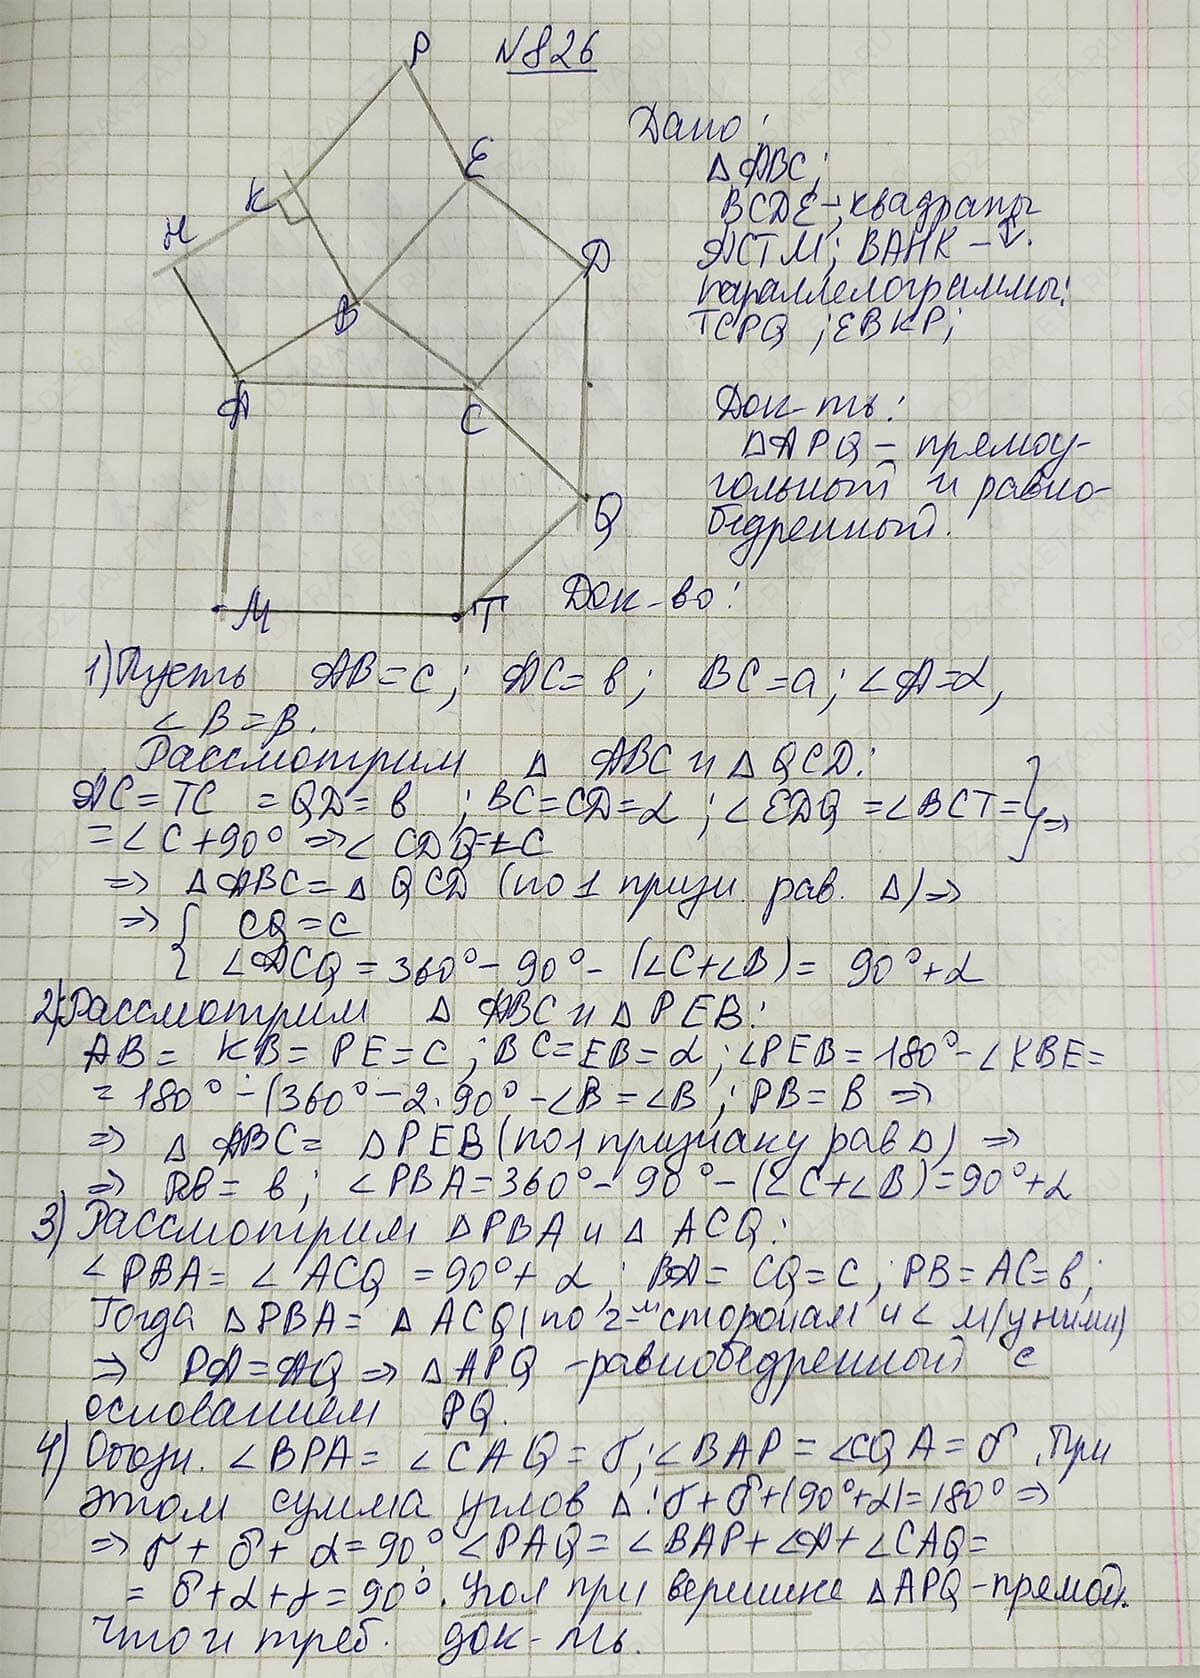 N826
P
E
K
H
D
B
A
C
Q
M
T
Дано:
△ ABC;
BCDE -; квадраты
ACTM; BAHK - ↑.
параллелограммы:
TCPQ ; EBKP;
Док-ть:
△APQ - прямоу-
гольный и равно-
бедренный.
Док-во:
1) Пусть AB = c; AC = в; BC = a; ∠A = α,
∠B = β.
Рассмотрим △ ABC и △ QCD:
AC = TC = QD = в ; BC = CD = α ; ∠EDQ = ∠BCT = } ⇒
= ∠C + 90° ⇒ ∠ CDQ = ∠C
⇒ △ ABC = △ QCD (по 1 призн. рав. △) ⇒
⇒ { CQ = C
{ ∠ACQ = 360° - 90° - (∠C + ∠B) = 90° + α
2) Рассмотрим △ ABC и △ PEB:
AB = KB = PE = C ; BC = EB = α ; ∠PEB = 180° - ∠KBE =
= 180° - (360° - 2·90° - ∠B = ∠B ; PB = B ⇒
⇒ △ ABC = △PEB (по 1 признаку рав △) ⇒
⇒ PB = в ; ∠PBA = 360° - 90° - (∠C + ∠B) = 90° + α
3) Рассмотрим △PBA и △ ACQ:
∠PBA = ∠ ACQ = 90° + α ; BA = CQ = C ; PB = AC = в;
Тогда △PBA = △ ACQ (по 2-м сторонам и ∠ м/у ними)
⇒ PA = AQ ⇒ △APQ - равнобедренный с
основанием PQ.
4) Обозн. ∠BPA = ∠CAQ = γ ; ∠BAP = ∠CQA = δ . При
этом сумма углов △: γ + δ + (90° + α) = 180° ⇒
⇒ γ + δ + α = 90° ∠PAQ = ∠BAP + ∠A + ∠CAQ =
= δ + α + γ = 90°. Угол при вершине △APQ - прямой.
Что и треб. док-ть.